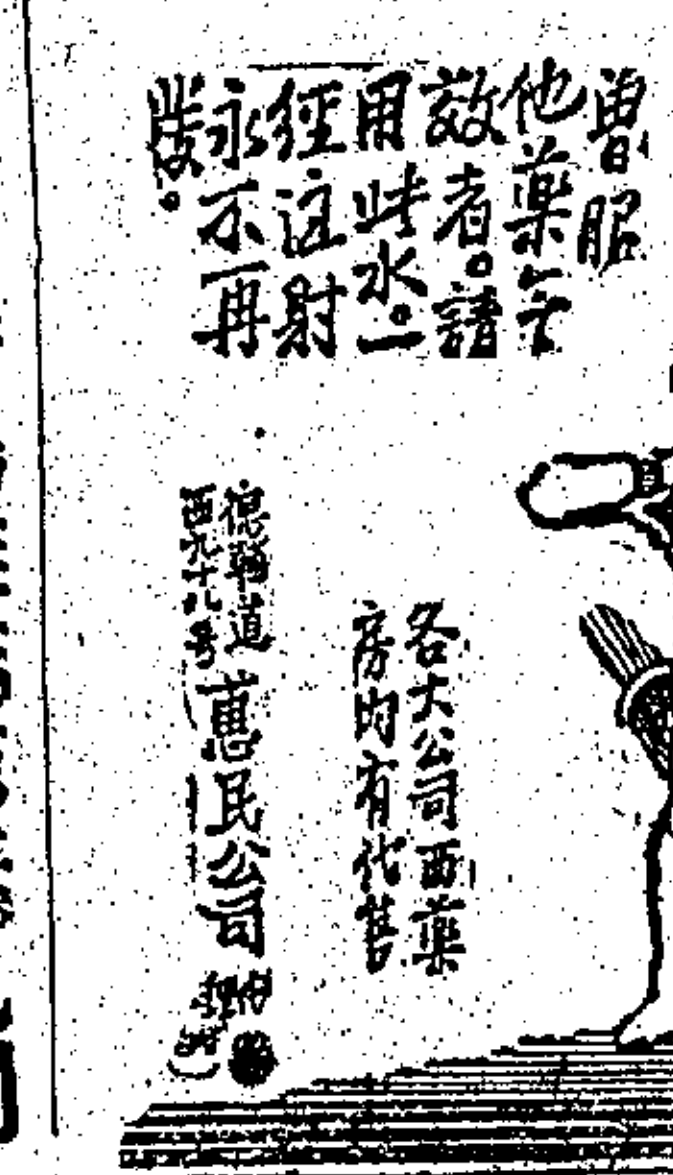 曾服
他藥無
效者。請
用此水。一
經注射
永不再
發。
各大公司西藥
房均有代售
德輔道
西九十八号
惠民公司